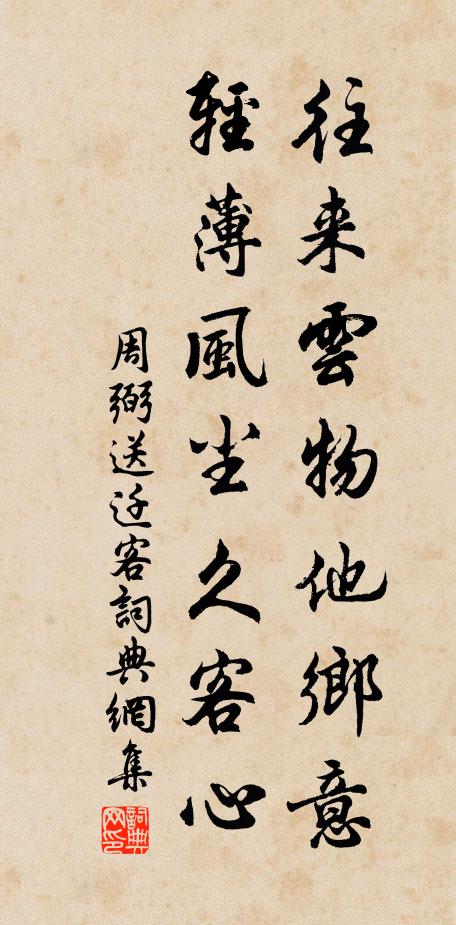 往来雲物他鄉意
輕薄風尘久客心
周弼送迁客詞典網集
詞典网印